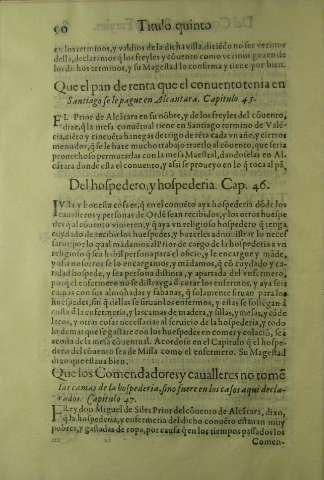 50 Titulo quinto
en los terminos, y valdios de la dicha villa, diziẽdo no ser vezinos
della, declaramos q̃ los freyles y cõuento como vezinos gozen de
los dichos terminos, y su Magestad lo confirma y tiene por bien.
Que el pan de renta que el conuento tenia en
Santiago se le pague en Alcantara. Capitulo 45.
EL Prior de Alcãtara en su nõbre, y de los freyles del cõuento,
dixo, q̃ la mesa conuẽtual tiene en Santiago termino de Valẽ-
cia, ciẽto y cincuẽta hanegas de trigo de rẽta cada vn año, y ciertos
menudos, q̃ se le haze mucho trabajo traerlo al cõuento, que seria
prouechoso permutarlas con la mesa Maestral, dandoselas en Al-
cãtara donde esta el cõuento, y assi se proueyo en lo q̃ toca al pã,
Del hospedero, y hospederia. Cap. 46.
IVsta y honesta cosa es, q̃ en el conuẽto aya hospederia dõde los
caualleros y personas de Ordẽ sean recibidos, y los otros huespe
des q̃ al cõuento vinieren, y q̃ aya vn religioso hospedero q̃ tenga
cuydado de recibir los huespedes, y hazerles administrar lo neces
sario: por lo qual mãdamos al Prior de cargo de la hospederia a vn
religioso q̃ sea habil persona para el oficio, y le encargue y mãde,
y assi nosotros se lo encargamos, y mãdamos, q̃ cõ cuydado y ca-
ridad hospede, y sea persona distinta, y apartada del enfermero,
porq̃ el enfermero no se distrayga d̃ curar los enfermos, y aya seis
camas con sus almohadas y sabanas, q̃ solamente siruan para los
huespedes, sin q̃ dellas se siruan los enfermos, y estas se fallegan à
costa d̃ la enfermeria, y las camas de madera, y sillas, y mesas, y cãde
leros, y otras cosas necessarias al seruicio de la hospederia, y todo
lo demas que se gastare con los huespedes en comer y colaciõ, sea
acosta de la mesa cõuentual. Acordose en el Capitulo q̃ el hospe-
dero del cõuento sea de Missa como el enfermero. Su Magestad
dixo que estaua bien.
Que los Comendadores y caualleros no tomẽ
las camas de la hospederia, sino fuere en los casos aqui decla-
rados. Capitulo 47.
FRey don Miguel de Siles Prior del cõuento de Alcãtara, dixo,
q̃ la hospederia, y enfermeria del dicho conuẽto estauan muy
pobres, y gastadas de ropa, por causa q̃ en los tiempos passados los
Comen-